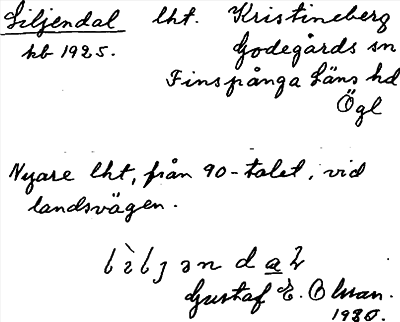 Liljendal lht. Kristineberg
kb 1925. Godegårds sn
Finspånga Läns hd
Ögl
Nyare lht, från 90-talet, vid
landsvägen.
Gustaf E. Olsson.
1930.